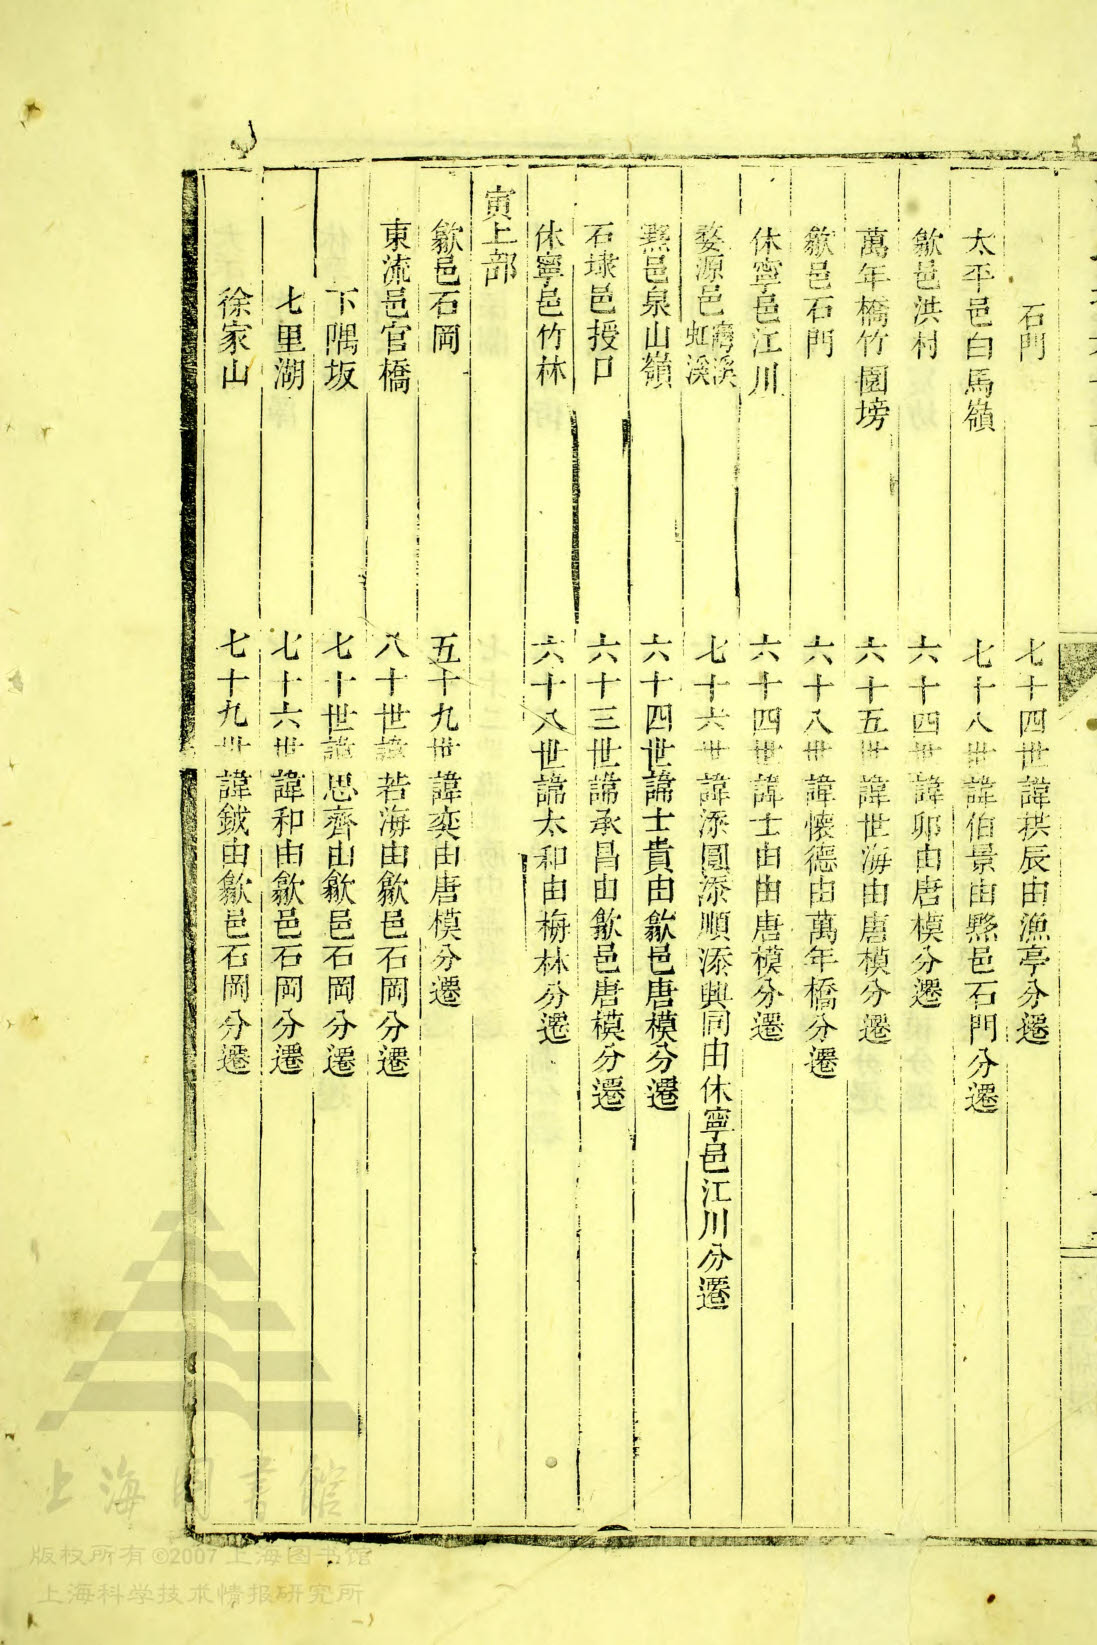 石門 七十四世諱拱辰由漁亭分遷
太平邑白馬嶺 七十八世諱伯景由黟邑石門分遷
歙邑洪村 六十四世諱卯由唐模分遷
萬年橋竹園塝 六十五世諱世海由唐模分遷
歙邑石門 六十八世諱懷德由萬年橋分遷
休寧邑江川 六十四世諱士由由唐模分遷
婺源邑溪虹溪 七十六世諱添圓添順添興同由休寧邑江川分遷
黟邑泉山嶺 六十四世諱士貴由歙邑唐模分遷
石埭邑授口 六十三世諱承昌由歙邑唐模分遷
休寧邑竹林 六十八世諱太和由梅林分遷
寅上部
歙邑石岡 五十九世諱奕由唐模分遷
東流邑官橋 八十世諱若海由歙邑石岡分遷
下隅坂 七十世諱思齊由歙邑石岡分遷
七里湖 七十六世諱和由歙邑石岡分遷
徐家山 七十九世諱鉞由歙邑石岡分遷
上海图书馆
版权所有©2007 上海图书馆
上海科学技术情报研究所